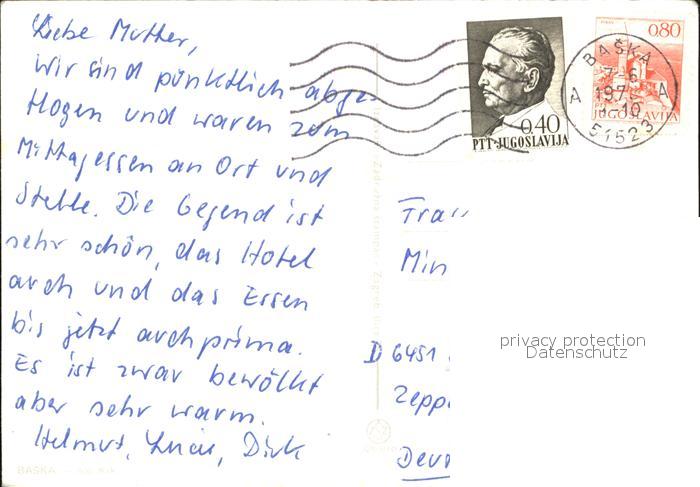 Liebe Mutter,
wir sind pünktlich abge-
flogen und waren zum
Mittagessen an Ort und
Stelle. Die Gegend ist
sehr schön, das Hotel
auch und das Essen
bis jetzt auch prima.
Es ist zwar bewölkt
aber sehr warm.
Helmut, Dirk
0,40
PTT·JUGOSLAVIJA
0.80
JUGOSLAVIJA
BAŠKA
51523
Frau
Min
privacy protection
Datenschutz
D 6451
Zepp
Deu
BAŠKA